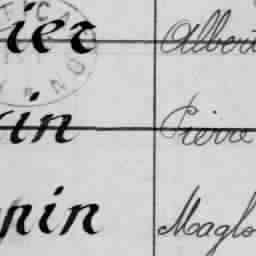 ier Albert
in Pierre
nin Maglo